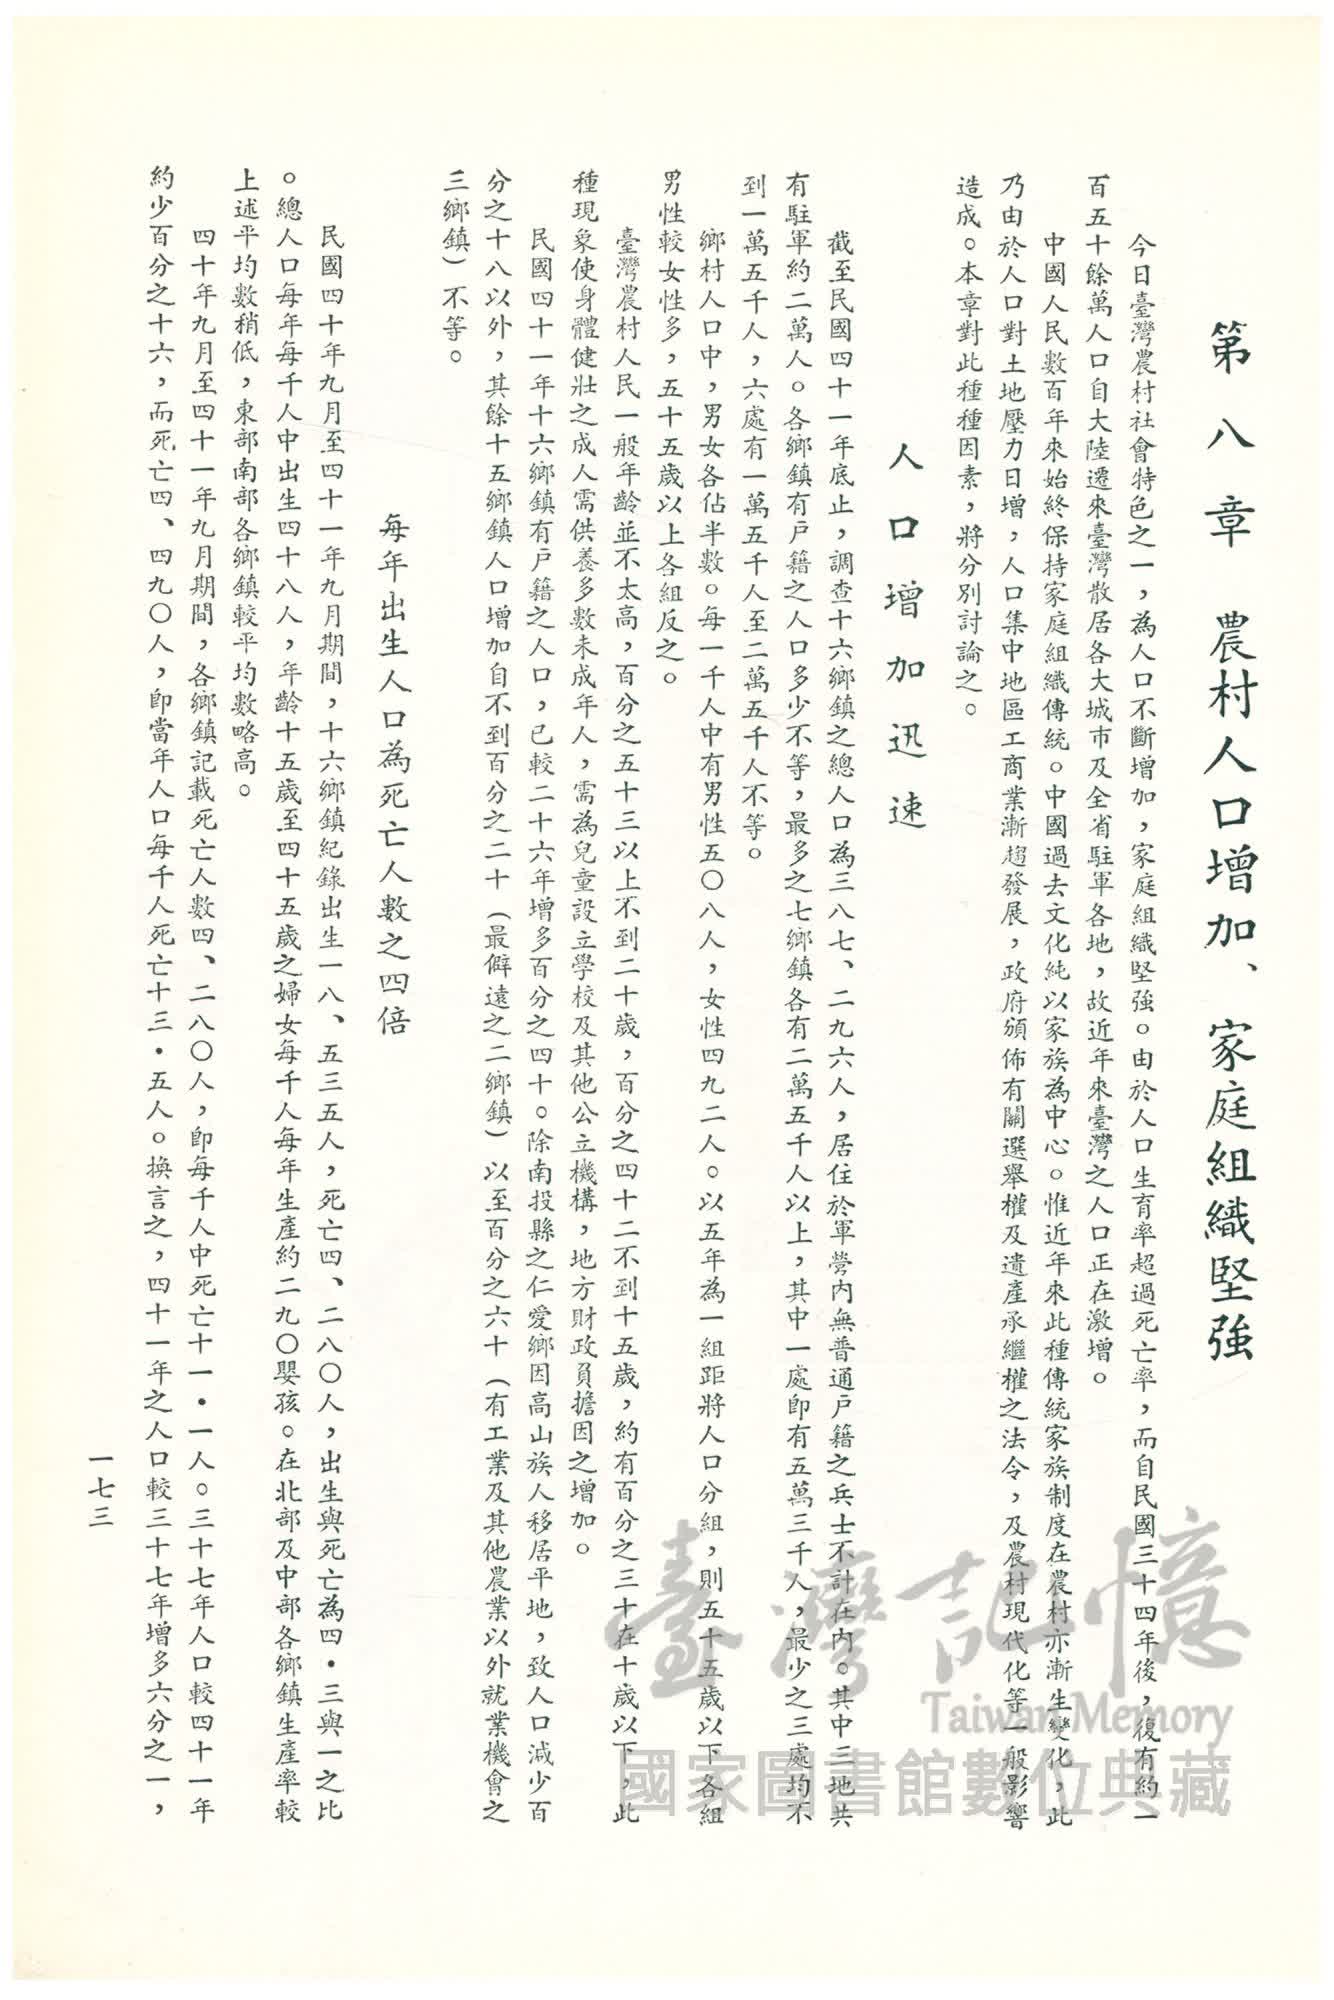 第八章　農村人口增加、家庭組織堅強
今日臺灣農村社會特色之一，為人口不斷增加，家庭組織堅強。由於人口生育率超過死亡率，而自民國三十四年後，復有約一
百五十餘萬人口自大陸遷來臺灣散居各大城市及全省駐軍各地，故近年來臺灣之人口正在激增。
中國人民數百年來始終保持家庭組織傳統。中國過去文化純以家族為中心。惟近年來此種傳統家族制度在農村亦漸生變化，此
乃由於人口對土地壓力日增，人口集中地區工商業漸趨發展，政府頒佈有關選舉權及遺產承繼權之法令，及農村現代化等一般影響
造成。本章對此種種因素，將分別討論之。
人口增加迅速
截至民國四十一年底止，調查十六鄉鎮之總人口為三八七、二九六人，居住於軍營內無普通戶籍之兵士不計在內。其中三地共
有駐軍約二萬人。各鄉鎮有戶籍之人口多少不等，最多之七鄉鎮各有二萬五千人以上，其中一處即有五萬三千人，最少之三處均不
到一萬五千人，六處有一萬五千人至二萬五千人不等。
鄉村人口中，男女各佔半數。每一千人中有男性五〇八人，女性四九二人。以五年為一組距將人口分組，則五十五歲以下各組
男性較女性多，五十五歲以上各組反之。
臺灣農村人民一般年齡並不太高，百分之五十三以上不到二十歲，百分之四十二不到十五歲，約有百分之三十在十歲以下，此
種現象使身體健壯之成人需供養多數未成年人，需為兒童設立學校及其他公立機構，地方財政負擔因之增加。
民國四十一年十六鄉鎮有戶籍之人口，已較二十六年增多百分之四十。除南投縣之仁愛鄉因高山族人移居平地，致人口減少百
分之十八以外，其餘十五鄉鎮人口增加自不到百分之二十（最僻遠之二鄉鎮）以至百分之六十（有工業及其他農業以外就業機會之
三鄉鎮）不等。
每年出生人口為死亡人數之四倍
民國四十年九月至四十一年九月期間，十六鄉鎮紀錄出生一八、五三五人，死亡四、二八〇人，出生與死亡為四．三與一之比
。總人口每年每千人中出生四十八人，年齡十五歲至四十五歲之婦女每千人每年生產約二九〇嬰孩。在北部及中部各鄉鎮生產率較
上述平均數稍低，東部南部各鄉鎮較平均數略高。
四十年九月至四十一年九月期間，各鄉鎮記載死亡人數四、二八〇人，即每千人中死亡十一．一人。三十七年人口較四十一年
約少百分之十六，而死亡四、四九〇人，即當年人口每千人死亡十三．五人。換言之，四十一年之人口較三十七年增多六分之一，
一七三
臺灣記憶
Taiwan Memory
國家圖書館數位典藏